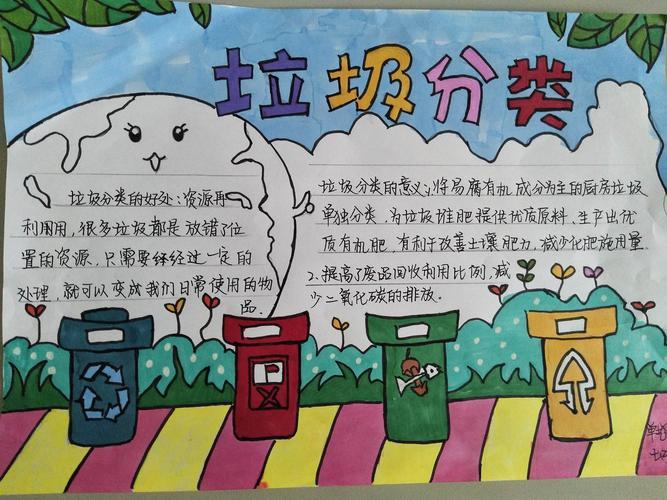 垃圾分类
垃圾分类的好处:资源再
利用用,很多垃圾都是放错了位
置的资源.只需要经过一定的
处理,就可以变成我们日常使用的物
品.
垃圾分类的意义:1,将易腐有机成分为主的厨房垃圾
单独分类,为垃圾堆肥提供优质原料,生产出优
质有机肥,有利于改善土壤肥力,减少化肥施用量
2、提高了废品回收利用比例,减
少二氧化碳的排放。